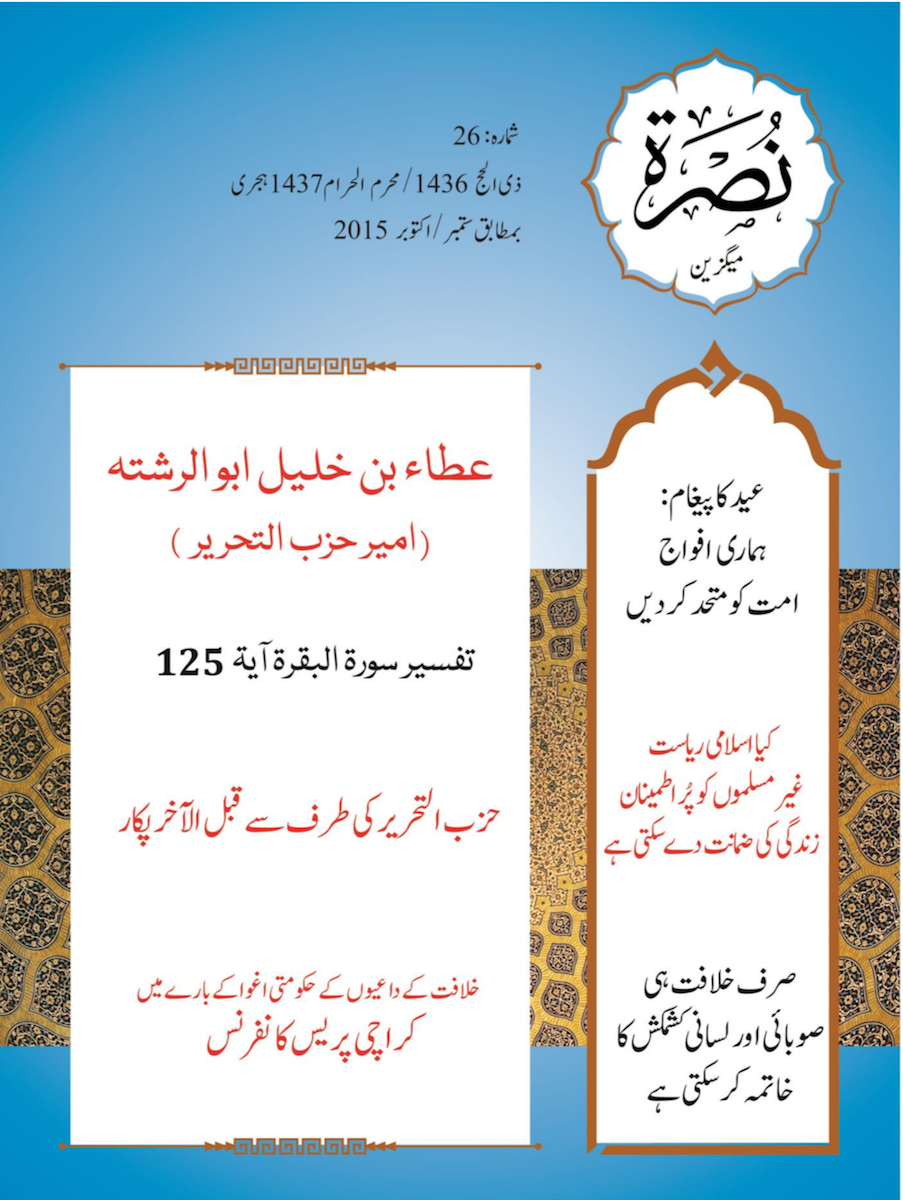 نُصرۃ
میگزین
شمارہ: 26
ذی الحج 1436/محرم الحرام1437ہجری
بمطابق ستمبر/اکتوبر 2015
عید کا پیغام:
ہماری افواج
امت کو متحد کر دیں
کیا اسلامی ریاست
غیر مسلموں کو پُر اطمینان
زندگی کی ضمانت دے سکتی ہے
صرف خلافت ہی
صوبائی اور لسانی کشمکش کا
خاتمہ کر سکتی ہے
عطاء بن خلیل ابو الرشتہ
(امیر حزب التحریر)
تفسیر سورۃ البقرۃ آیۃ 125
حزب التحریر کی طرف سے قبل الآخر پکار
خلافت کے داعیوں کے حکومتی اغوا کے بارے میں
کراچی پریس کانفرنس